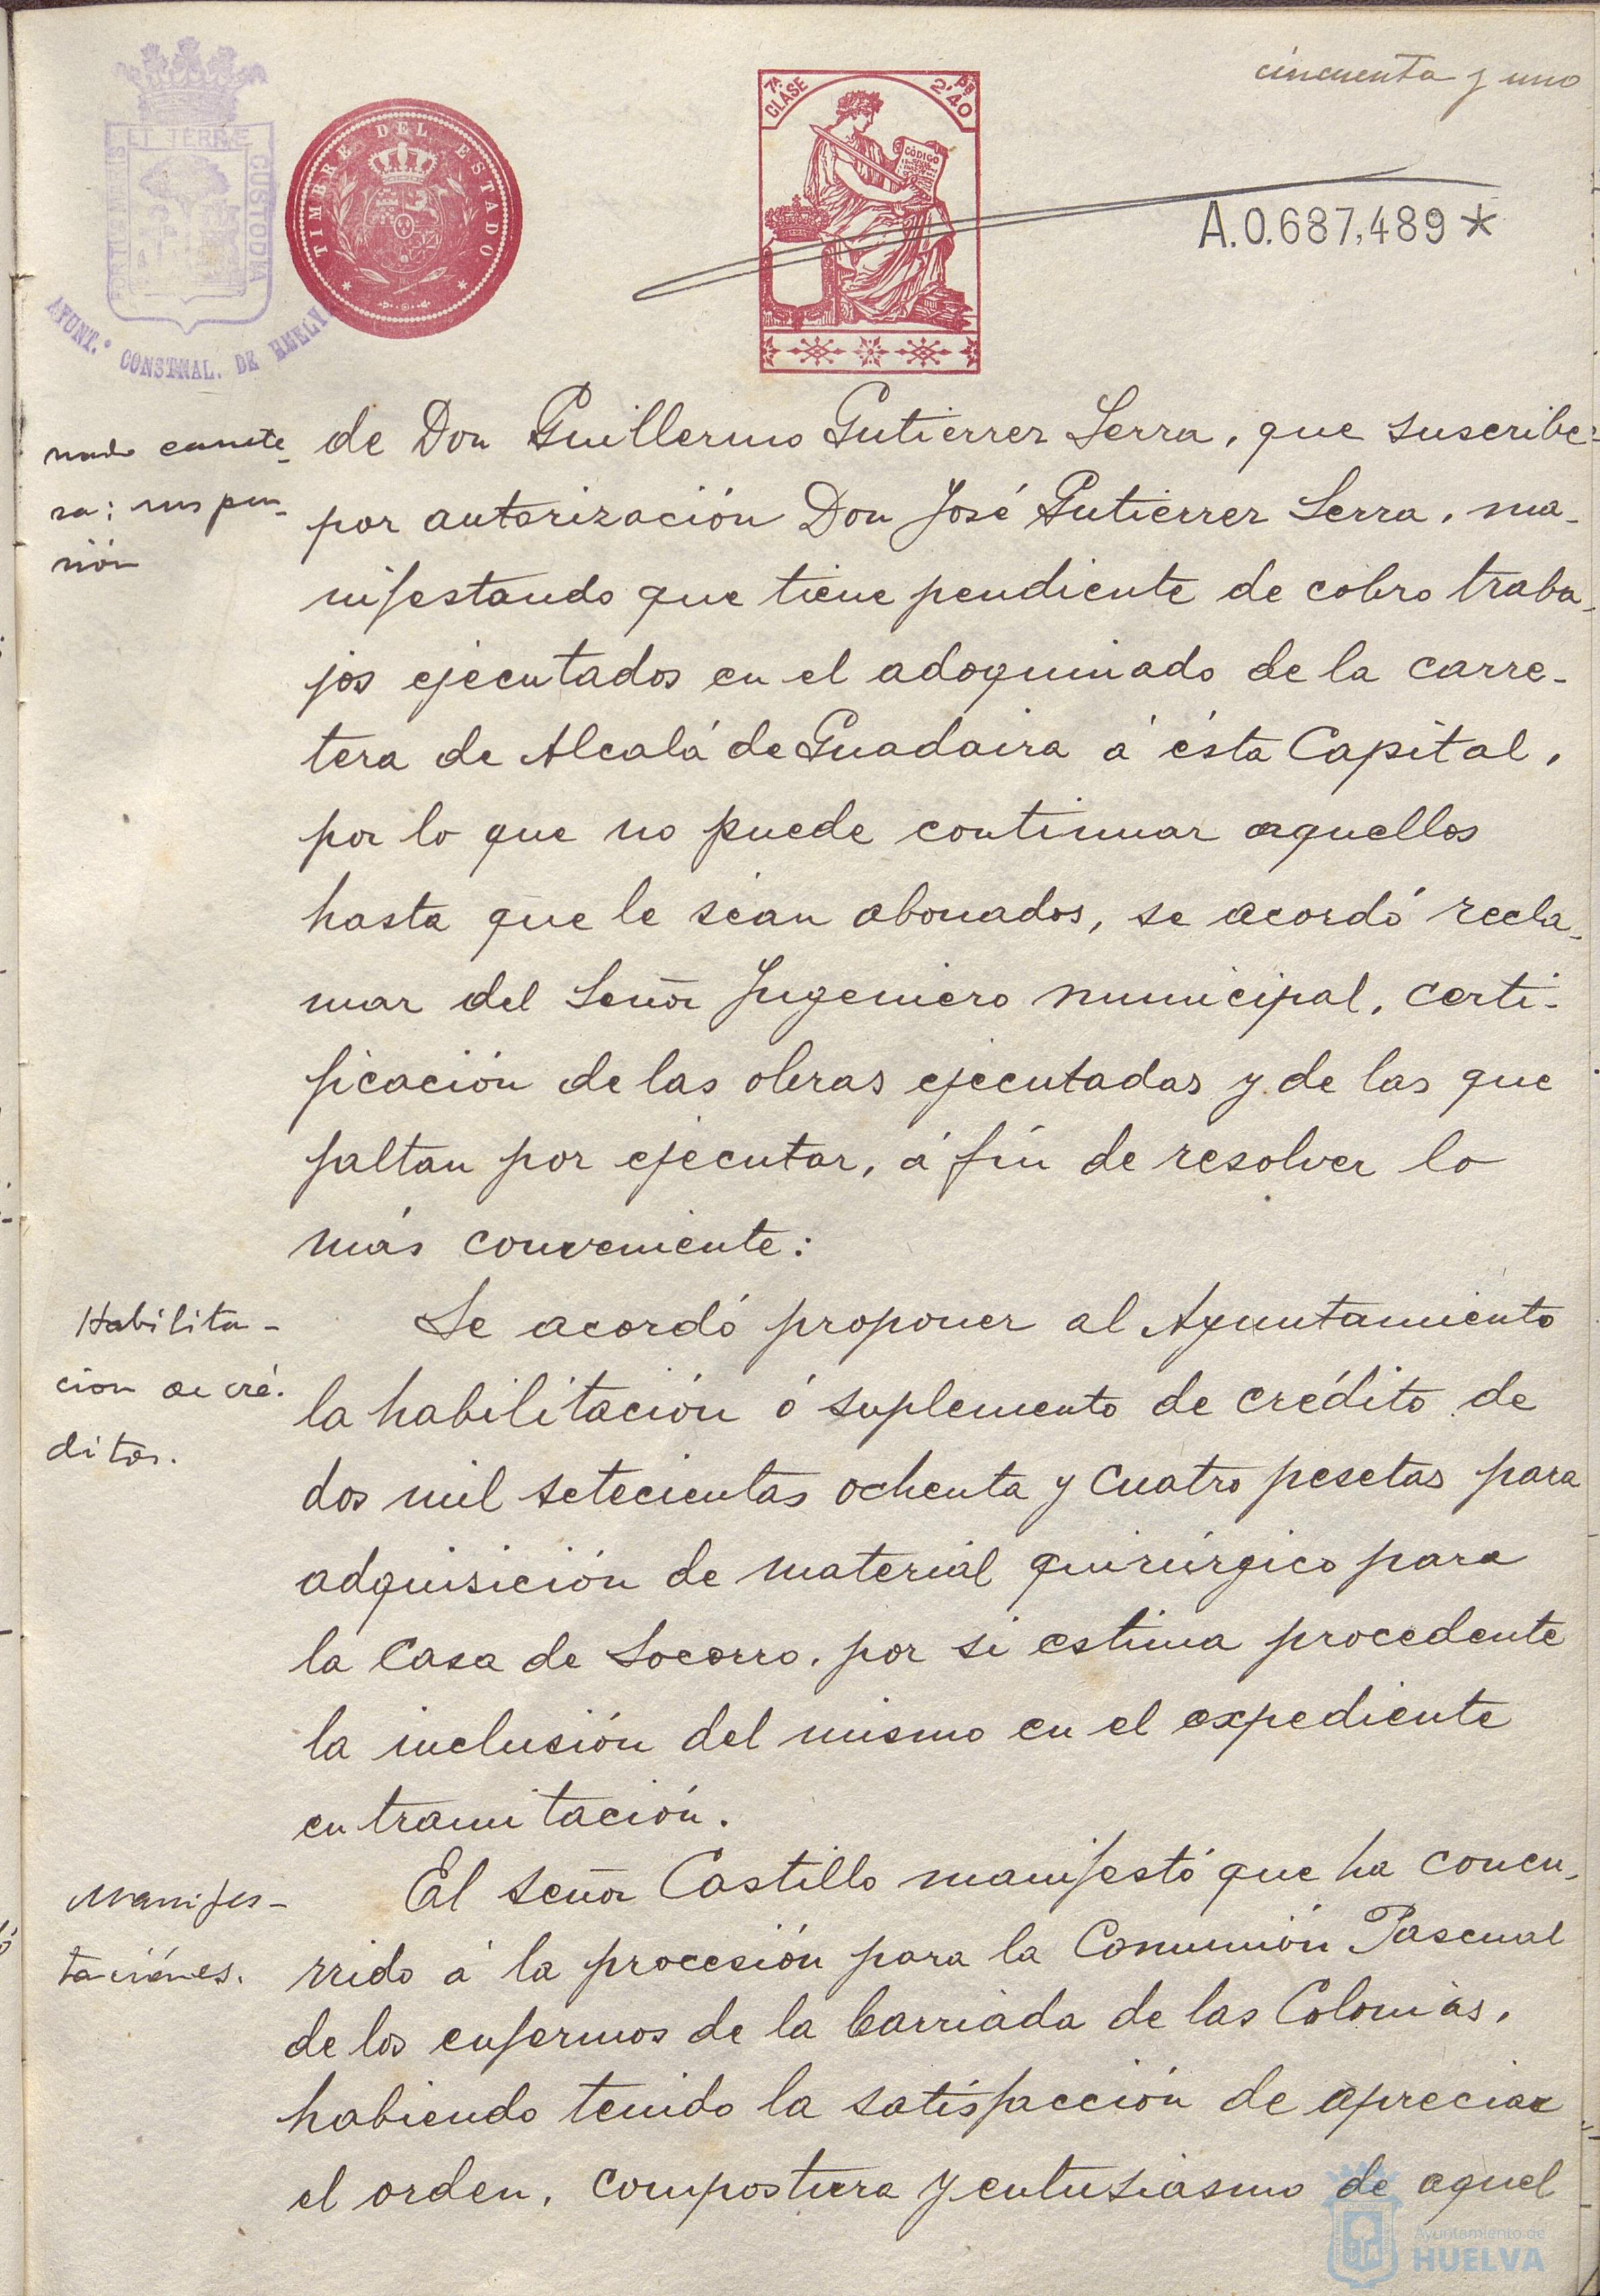 cincuenta y uno
PORTUS MARIS
ET TERRE
CUSTODIA
AYUNT.º CONSTNAL. DE HUELVA
TIMBRE DEL ESTADO
7ª CLASE
2'40 Pts
CÓDIGO
A.0.687,489*
nado carrete-
ra: suspen-
sión
de Don Guillermo Gutierrez Serra, que suscribe
por autorización Don José Gutierrez Serra, ma-
nifestando que tiene pendiente de cobro traba-
jos ejecutados en el adoquinado de la carre-
tera de Alcalá de Guadaira á ésta Capital,
por lo que no puede continuar aquellos
hasta que le sean abonados, se acordó recla-
mar del Señor Ingeniero municipal, certi-
ficación de las obras ejecutadas y de las que
faltan por ejecutar, á fín de resolver lo
más conveniente:
Habilita-
cion de cré-
ditos.
Se acordó proponer al Ayuntamiento
la habilitación ó suplemento de crédito de
dos mil setecientas ochenta y cuatro pesetas para
adquisición de material quirúrgico para
la Casa de Socorro, por si estima procedente
la inclusión del mismo en el expediente
en tramitación.
Manifes-
taciónes.
El Señor Castillo manifestó que ha concu-
rrido á la procesión para la Comunión Pascual
de los enfermos de la barriada de las Colonias,
habiendo tenido la satisfacción de apreciar
el orden, compostura y entusiasmo de aquel
Ayuntamiento de
HUELVA